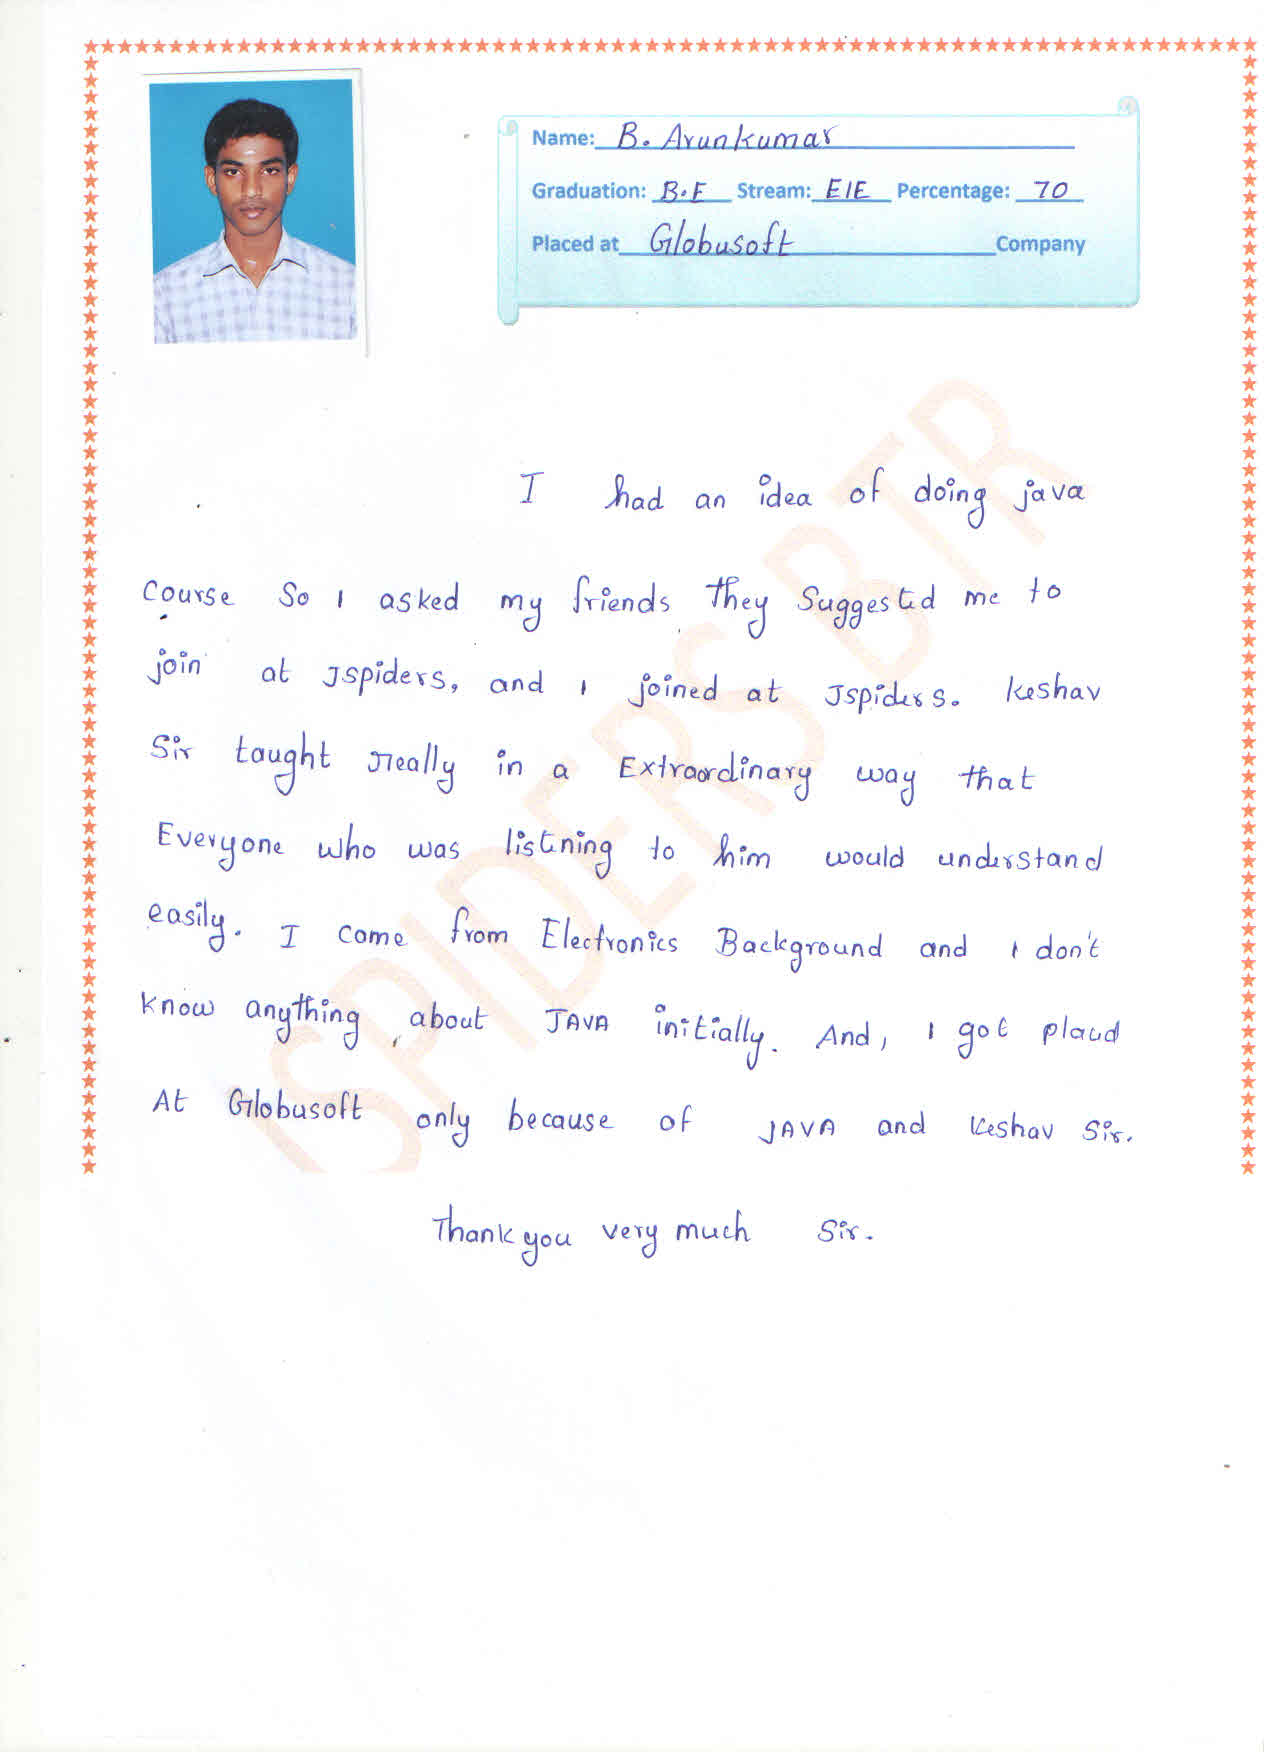 Name: B. Arunkumar
Graduation: B.E Stream: EIE Percentage: 70
Placed at Globusoft Company
I had an idea of doing java
course So I asked my friends they Suggested me to
join at Jspiders, and I joined at Jspiders. Keshav
Sir taught really in a Extraordinary way that
Everyone who was listning to him would understand
easily. I come from Electronics Background and I don't
know anything about JAVA initially. And, I got placed
At Globusoft only because of JAVA and Keshav Sir.
Thank you very much Sir.
JSPIDERS BTR